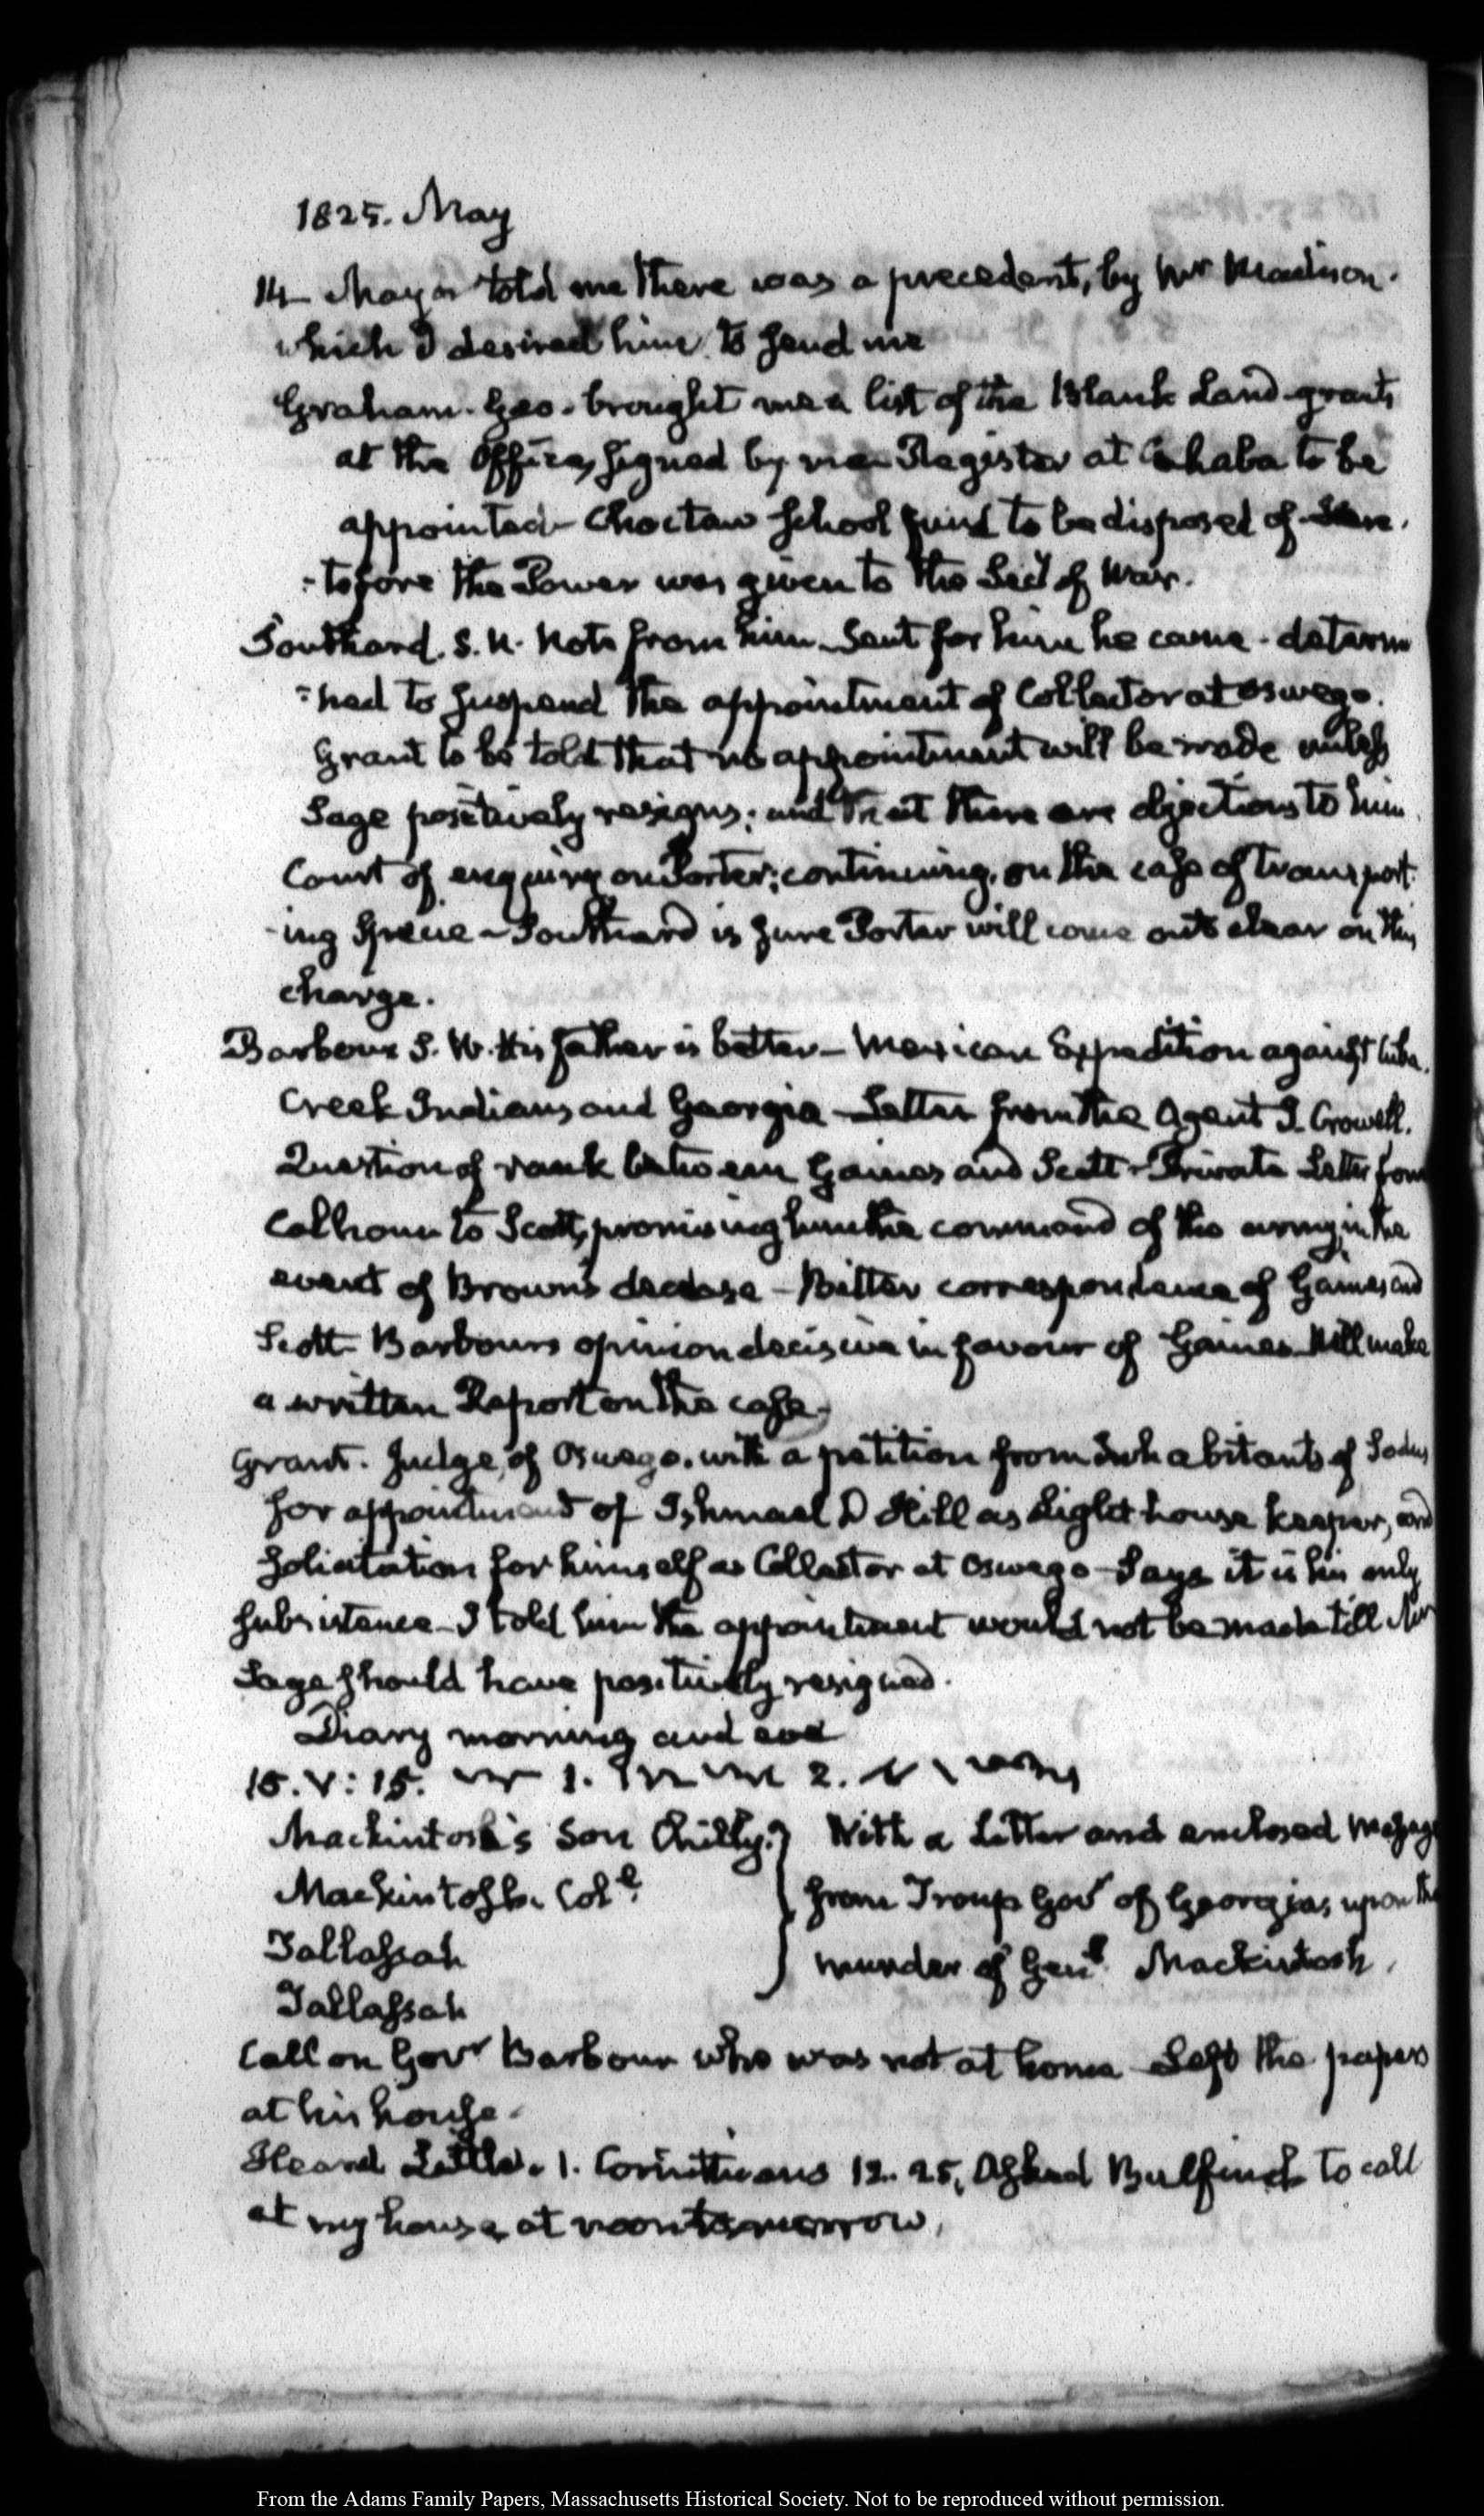 1825. May
14 Mayor told me there was a precedent, by Mr Madison.
which I desired him to send me
Graham. Geo. brought me a list of the Blank Land-grants
at the Office, signed by me Register at Cahaba to be
appointed - Choctaw School fund to be disposed of. Here-
-tofore the Power was given to the Secy of War.
Southard. S. N. Note from him. Sent for him he came - determ
=ned to suspend the appointment of Collector at Oswego.
Grant to be told that no appointment will be made unless
Sage positively resigns; and that there are objections to him
Court of enquiry on Porter; continuing, on the case of transport-
-ing Specie - Southard is sure Porter will come out clear on this
charge.
Barbour S. W. His father is better - Mexican Expedition against Cuba.
Creek Indians and Georgia - Letter from the Agent J. Crowell.
Question of rank between Gaines and Scott - Private Letter from
Calhoun to Scott, promising him the command of the army, in the
event of Brown's decease - Bitter correspondence of Gaines and
Scott - Barbour's opinion decisive in favour of Gaines. Will make
a written Report on the case.
Grant. Judge, of Oswego. with a petition from Inhabitants of Sodus
for appointment of Ishmael D Hill as Light house keeper, and
solicitation for himself as Collector at Oswego - Says it is his only
subsistence - I told him the appointment would not be made till Mr
Sage should have positively resigned.
Diary morning and eve
15. V: 15. 1. 2.
Mackintosh's Son Chilly. } With a Letter and enclosed Message
Mackintosh. Coll. from Troup Govr of Georgia, upon the
Tallassah murder of Genl. Mackintosh.
Tallassah
Call on Govr Barbour who was not at home - Left the papers
at his house.
Heard Little. 1. Corinthians 12. 25, Asked Bulfinch to call
at my house, at noon tomorrow,
From the Adams Family Papers, Massachusetts Historical Society. Not to be reproduced without permission.